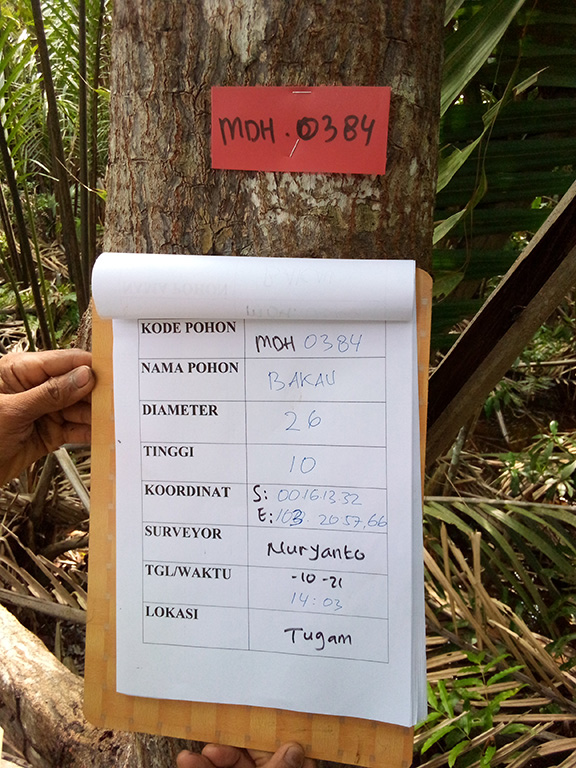 MDH. 0384
KODE POHON MDH 0384
NAMA POHON BAKAU
DIAMETER 26
TINGGI 10
KOORDINAT S: 00 16.13 32
E: 103. 20 57,66
SURVEYOR Nuryanto
TGL/WAKTU -10-21
14:03
LOKASI Tugam